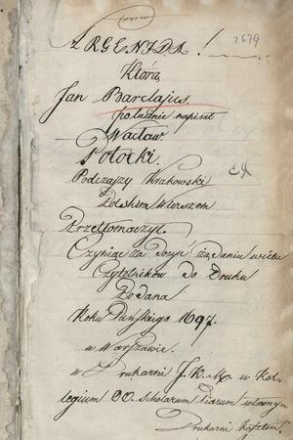 ARGENIDA!
2679
Którą
Jan Barclajus
po łacinie napisał
Wacław
Potocki.
Podczaszy Krakowski
Polskim Wierszem
Przetłomaczył.
Czyniąc za dosyć żądaniu wielu
Czytelników do Druku
Podana
Roku Pańskiego 1697.
w Warszawie.
w Drukarni J. K. M w Kol-
legium OO. Scholarum Piarum własnym
Drukarni kosztem.